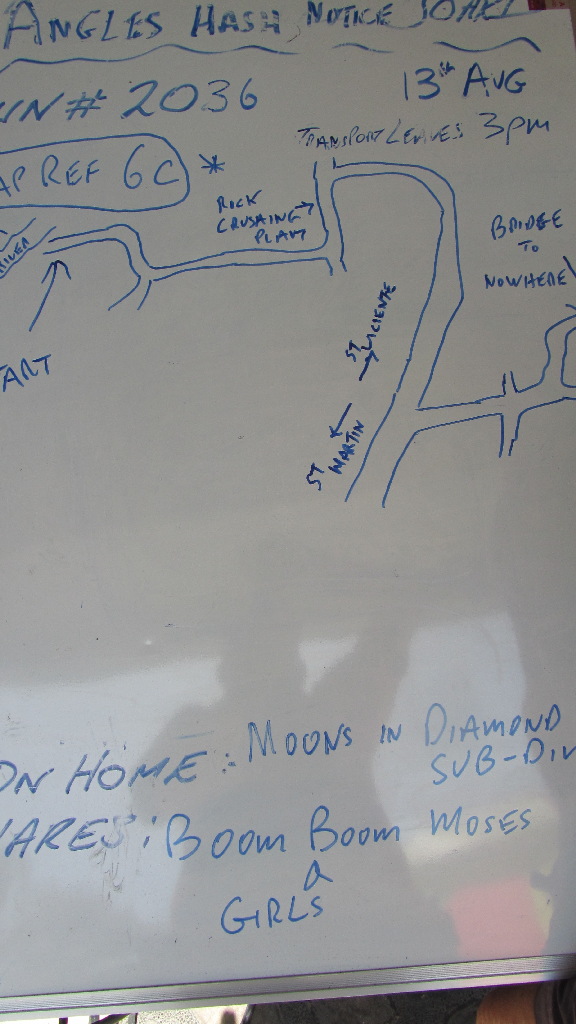 ANGLES HASH NOTICE BOARD
UN# 2036
13th AUG
TRANSPORT LEAVES 3pm
AP REF 6C *
ROCK
CRUSHING
PLANT
BRIDGE
TO
NOWHERE
RIVER
TART
ST VICIENTE
ST MARTIN
ON HOME : MOONS IN DIAMOND
SUB-DIV
HARES : BOOM BOOM MOSES
a
GIRLS